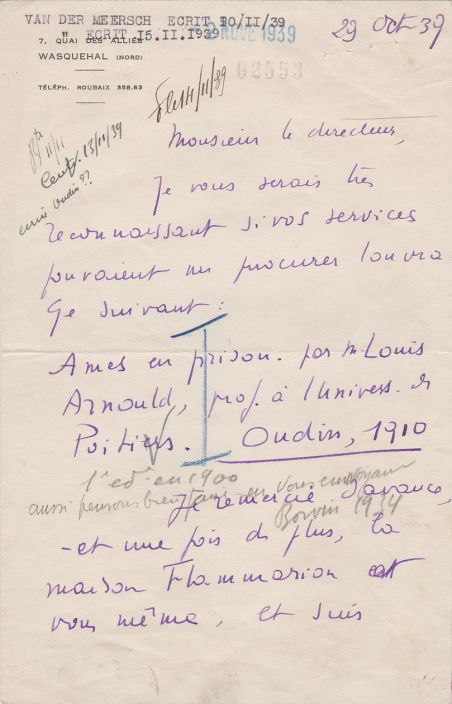 VAN DER MEERSCH ECRIT 10/II/39
" ECRIT I5.II.1939
7. QUAI DES ALLIÉS
WASQUEHAL (NORD)
TÉLÉPH. ROUBAIX 358.63
2 NOVE 1939
02553
29 Oct 39
14/11/39
11/11
13/11/39
Oudin ??
Monsieur le directeur,
Je vous serais très
reconnaissant si vos services
pouvaient me procurer l'ouvra
ge suivant :
Ames en prison. par M. Louis
Arnould, prof. à l'Univers. de
Poitiers. Oudin, 1910
1e ed. en 1900
aussi pensons bien faire en vous envoyant
Boivin 1934
Je remercie d'avance,
- et une fois de plus, la
maison Flammarion et
vous même, et suis